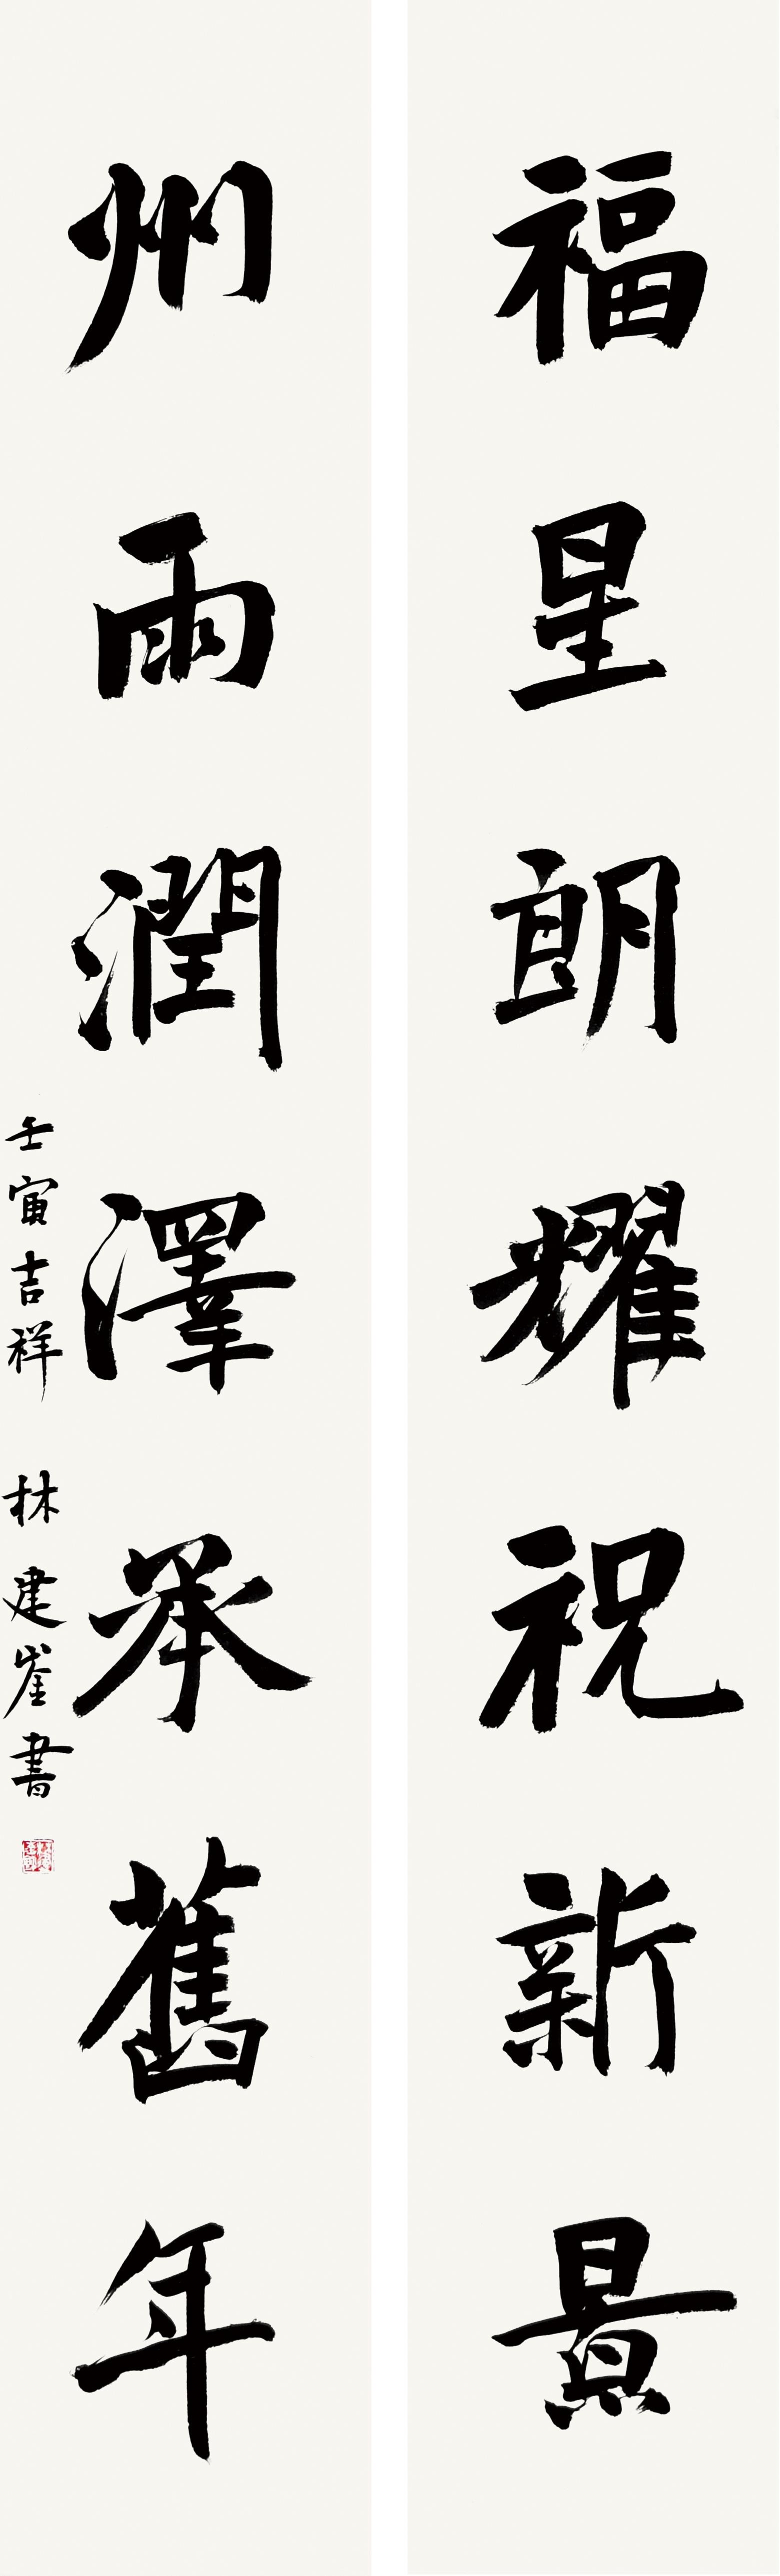 福星朗耀祝新景
州雨潤澤承舊年
壬寅吉祥 林建崟書